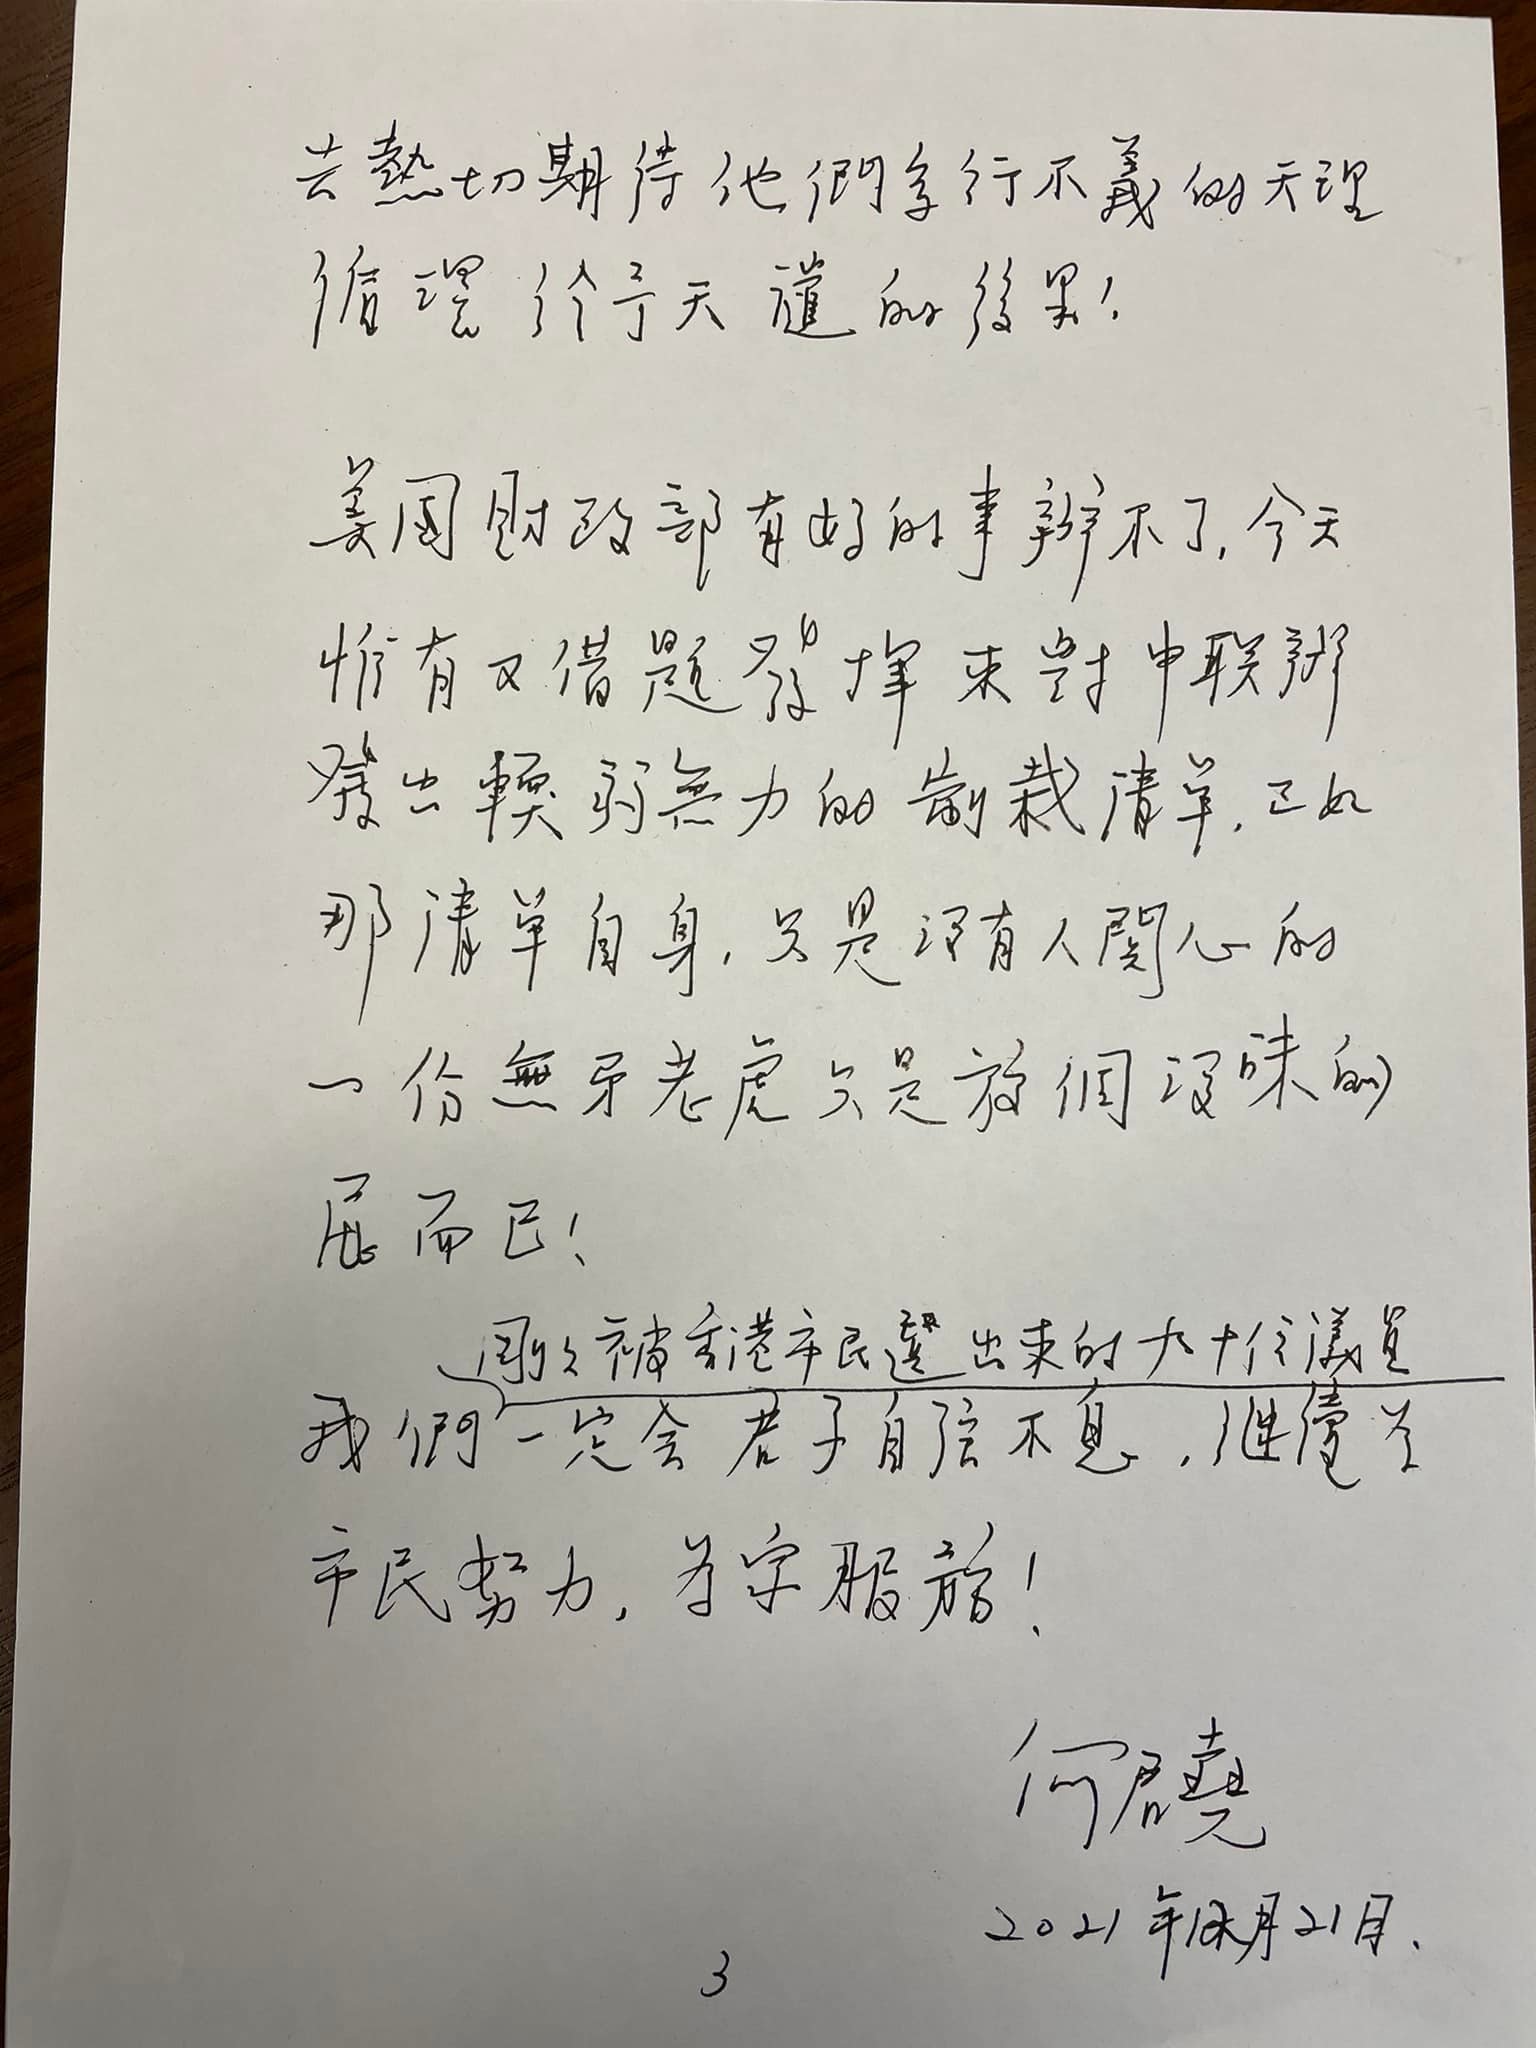 去熱切期待他們多行不義的天理
循環行天譴的後果!
美國財政部有好的事辦不了,今天
惟有又借題發揮來對中联辦
發出軟弱無力的制裁清单,正如
那清单自身,只是沒有人關心的
一份無牙老虎只是放個沒味的
屁而已!
剛剛被香港市民選出來的九十位議員
我們一定会君子自强不息,继續爲
市民努力,为字服務!
何君堯
2021年12月21日.
3